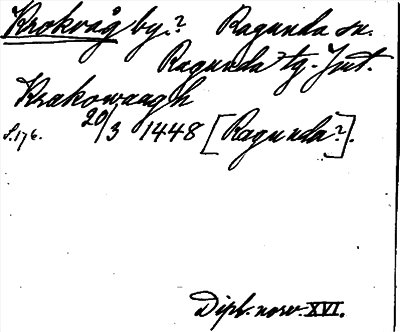 Krokvåg by.? Ragunda sn.
Ragunda tg. Jmt.
Krakowaagh
S. 176. 20/3 1448 [Ragunda?].
Dipl. norv. XVI.